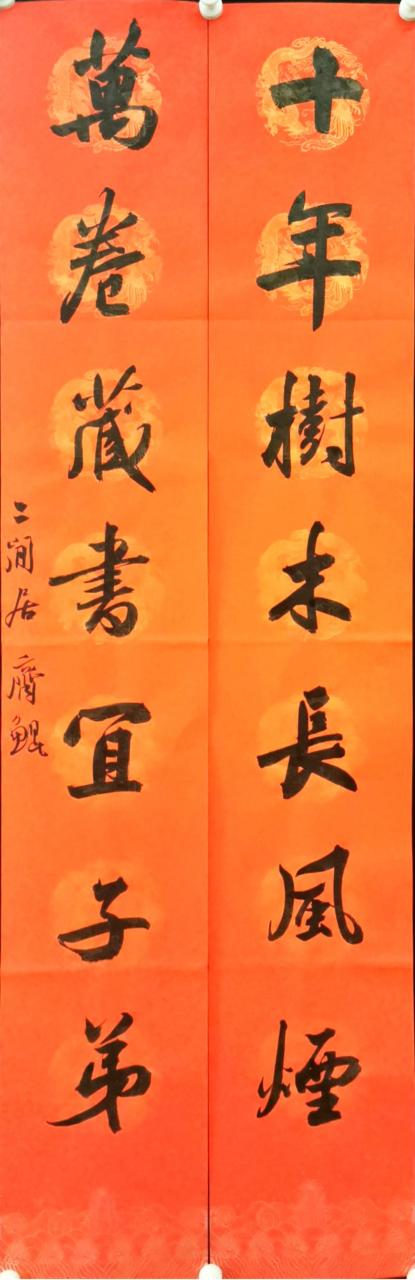 十年樹木長風煙
萬卷藏書宜子弟
二澗居 齊鯤